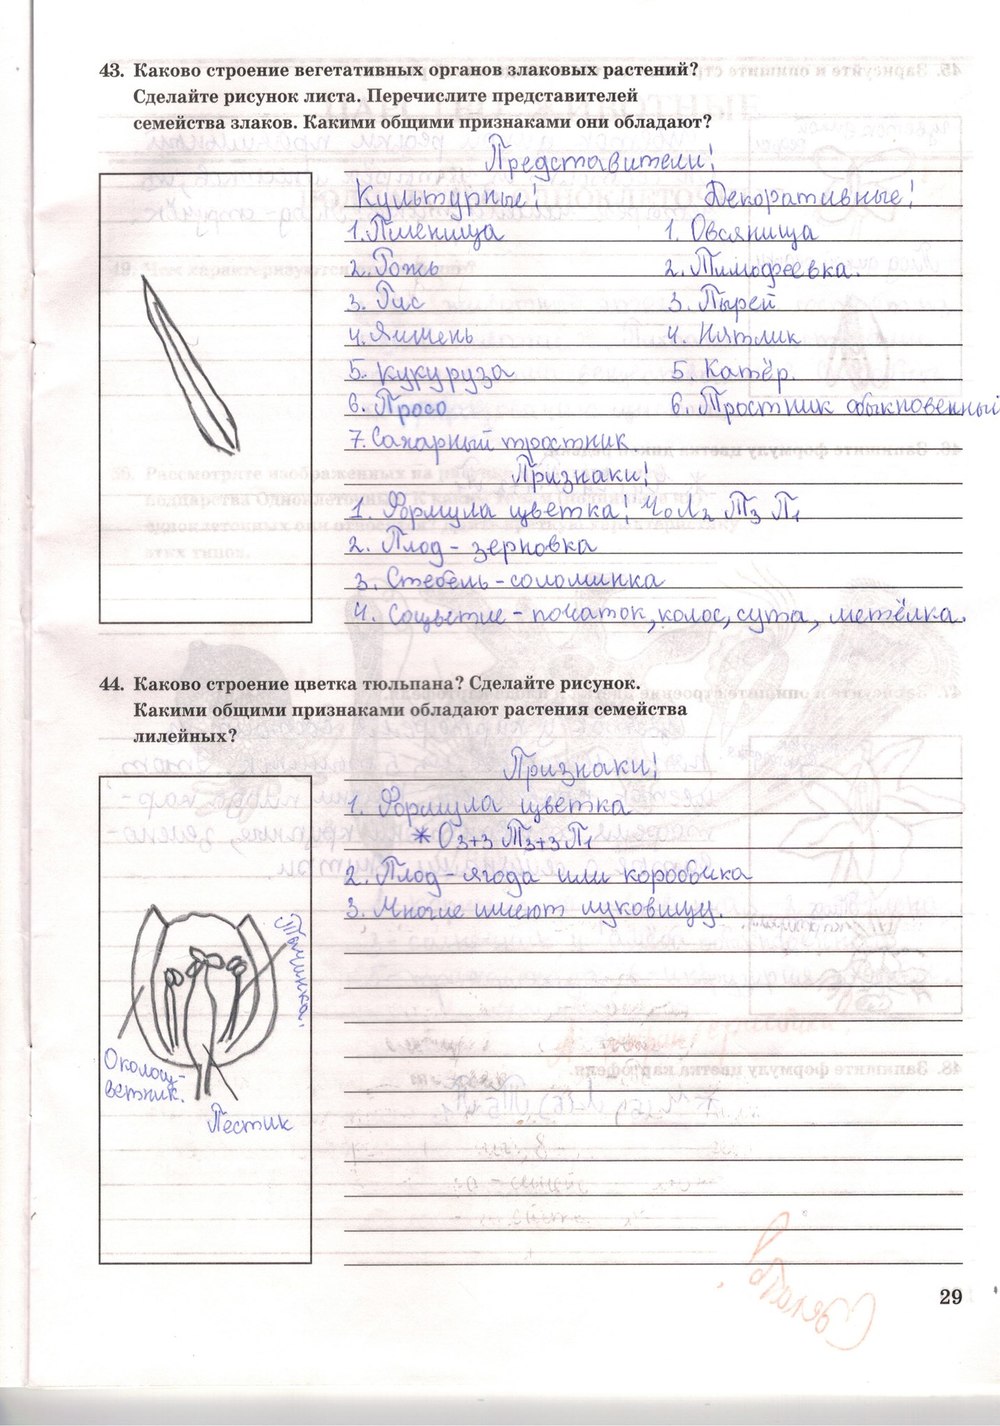 43. Каково строение вегетативных органов злаковых растений?
Сделайте рисунок листа. Перечислите представителей
семейства злаков. Какими общими признаками они обладают?
Представители!
Культурные! Декоративные!
1. Пшеница 1. Овсяница
2. Рожь 2. Тимофеевка.
3. Рис 3. Пырей
4. Ячмень 4. Мятлик
5. Кукуруза 5. Катёр.
6. Просо 6. Тростник обыкновенный
7. Сахарный тростник
Признаки!
1. Формула цветка! Ч0Л2 Т3 П1
2. Плод - зерновка
3. Стебель - соломинка
4. Соцветие - початок, колос, сута, метёлка.
44. Каково строение цветка тюльпана? Сделайте рисунок.
Какими общими признаками обладают растения семейства
лилейных?
Признаки!
1. Формула цветка
* О3+3 Т3+3 П1
2. Плод - ягода или коробочка
3. Многие имеют луковицу.
Тычинка.
Околоц-
ветник.
Пестик
29